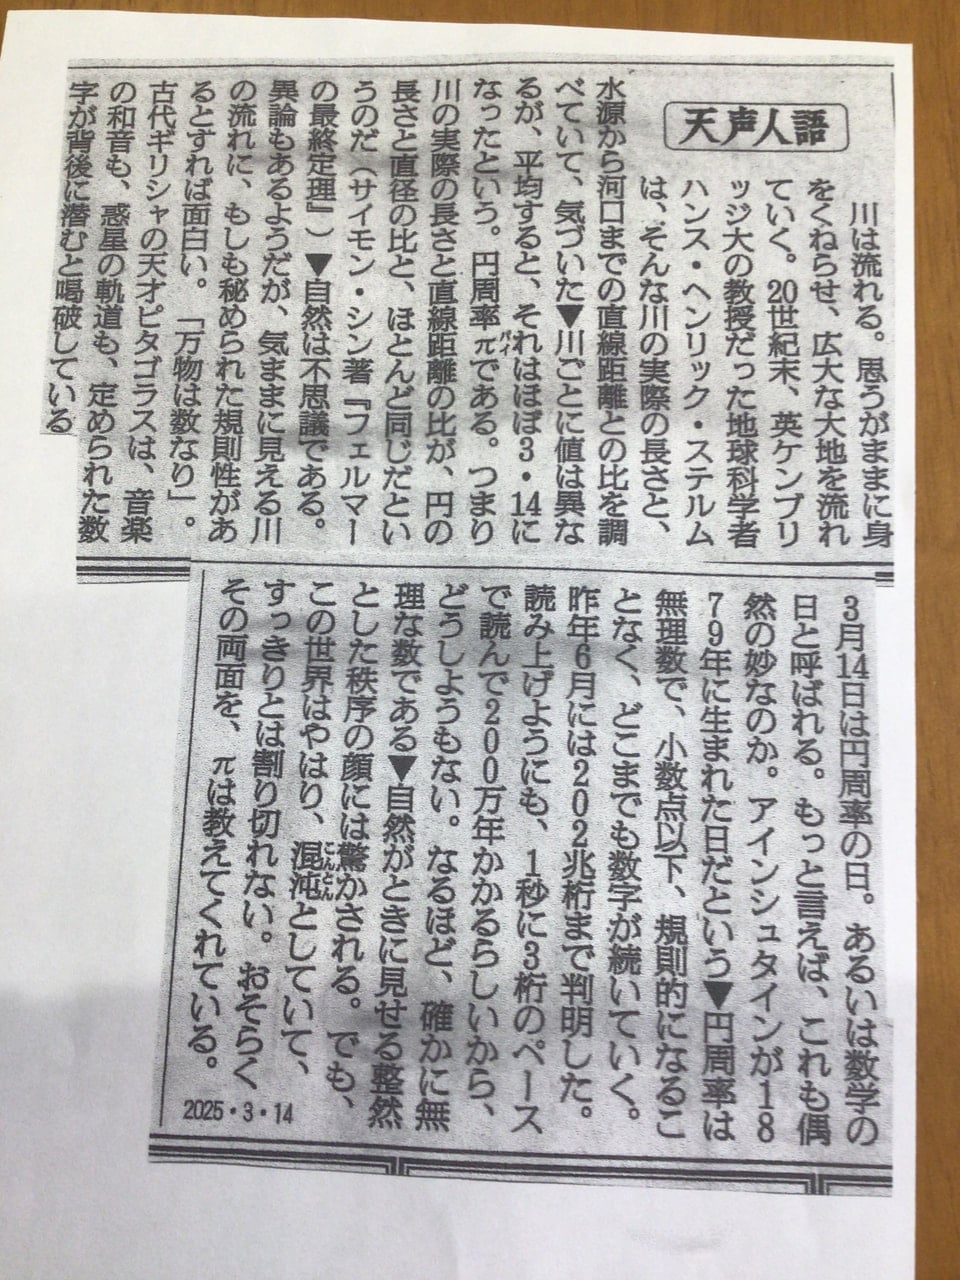 天声人語
川は流れる。思うがままに身
をくねらせ、広大な大地を流れ
ていく。20世紀末、英ケンブリ
ッジ大の教授だった地球科学者
ハンス・ヘンリック・ステルム
は、そんな川の実際の長さと、
水源から河口までの直線距離との比を調
べていて、気づいた▼川ごとに値は異な
るが、平均すると、それはほぼ3・14に
なったという。円周率π(パイ)である。つまり
川の実際の長さと直線距離の比が、円の
長さと直径の比と、ほとんど同じだとい
うのだ（サイモン・シン著『フェルマー
の最終定理』）▼自然は不思議である。
異論もあるようだが、気ままに見える川
の流れに、もしも秘められた規則性があ
るとすれば面白い。「万物は数なり」。
古代ギリシャの天才ピタゴラスは、音楽
の和音も、惑星の軌道も、定められた数
字が背後に潜むと喝破している
3月14日は円周率の日。あるいは数学の
日と呼ばれる。もっと言えば、これも偶
然の妙なのか。アインシュタインが18
79年に生まれた日だという▼円周率は
無理数で、小数点以下、規則的になるこ
となく、どこまでも数字が続いていく。
昨年6月には202兆桁まで判明した。
読み上げようにも、1秒に3桁のペース
で読んで200万年かかるらしいから、
どうしようもない。なるほど、確かに無
理な数である▼自然がときに見せる整然
とした秩序の顔には驚かされる。でも、
この世界はやはり、混沌(こんとん)としていて、
すっきりとは割り切れない。おそらく
その両面を、πは教えてくれている。
2025・3・14